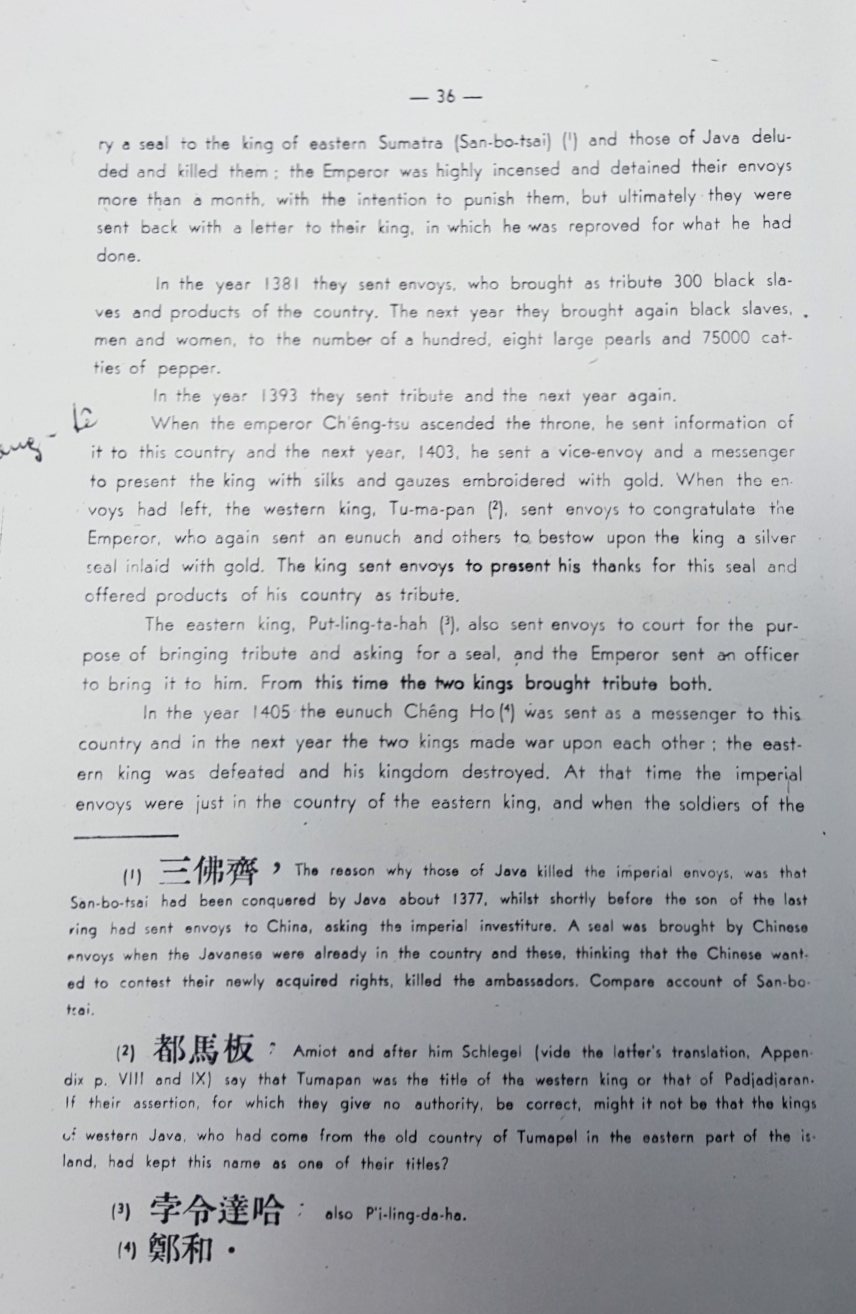 — 36 —
ry a seal to the king of eastern Sumatra (San-bo-tsai) (¹) and those of Java delu-
ded and killed them ; the Emperor was highly incensed and detained their envoys
more than a month, with the intention to punish them, but ultimately they were
sent back with a letter to their king, in which he was reproved for what he had
done.
In the year 1381 they sent envoys, who brought as tribute 300 black sla-
ves and products of the country. The next year they brought again black slaves,
men and women, to the number of a hundred, eight large pearls and 75000 cat-
ties of pepper.
In the year 1393 they sent tribute and the next year again.
When the emperor Ch'êng-tsu ascended the throne, he sent information of
it to this country and the next year, 1403, he sent a vice-envoy and a messenger
to present the king with silks and gauzes embroidered with gold. When the en-
voys had left, the western king, Tu-ma-pan (²), sent envoys to congratulate the
Emperor, who again sent an eunuch and others to bestow upon the king a silver
seal inlaid with gold. The king sent envoys to present his thanks for this seal and
offered products of his country as tribute.
The eastern king, Put-ling-ta-hah (³), also sent envoys to court for the pur-
pose of bringing tribute and asking for a seal, and the Emperor sent an officer
to bring it to him. From this time the two kings brought tribute both.
In the year 1405 the eunuch Chêng Ho (⁴) was sent as a messenger to this
country and in the next year the two kings made war upon each other ; the east-
ern king was defeated and his kingdom destroyed. At that time the imperial
envoys were just in the country of the eastern king, and when the soldiers of the
(1) 三佛齊， The reason why those of Java killed the imperial envoys, was that
San-bo-tsai had been conquered by Java about 1377, whilst shortly before the son of the last
ring had sent envoys to China, asking the imperial investiture. A seal was brought by Chinese
envoys when the Javanese were already in the country and these, thinking that the Chinese want-
ed to contest their newly acquired rights, killed the ambassadors. Compare account of San-bo-
tsai.
(2) 都馬板 ; Amiot and after him Schlegel (vide the latter's translation, Appen-
dix p. VIII and IX) say that Tumapan was the title of the western king or that of Padjadjaran.
If their assertion, for which they give no authority, be correct, might it not be that the kings
of western Java, who had come from the old country of Tumapel in the eastern part of the is-
land, had kept this name as one of their titles?
(3) 孛令達哈 ; also P'i-ling-da-ha.
(4) 鄭和 .